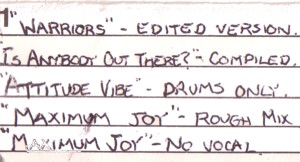 1 "WARRIORS" - EDITED VERSION.
IS ANYBODY OUT THERE?" - COMPILED.
"ATTITUDE VIBE" - DRUMS ONLY.
"MAXIMUM JOY" - ROUGH MIX
"MAXIMUM JOY" - NO VOCAL